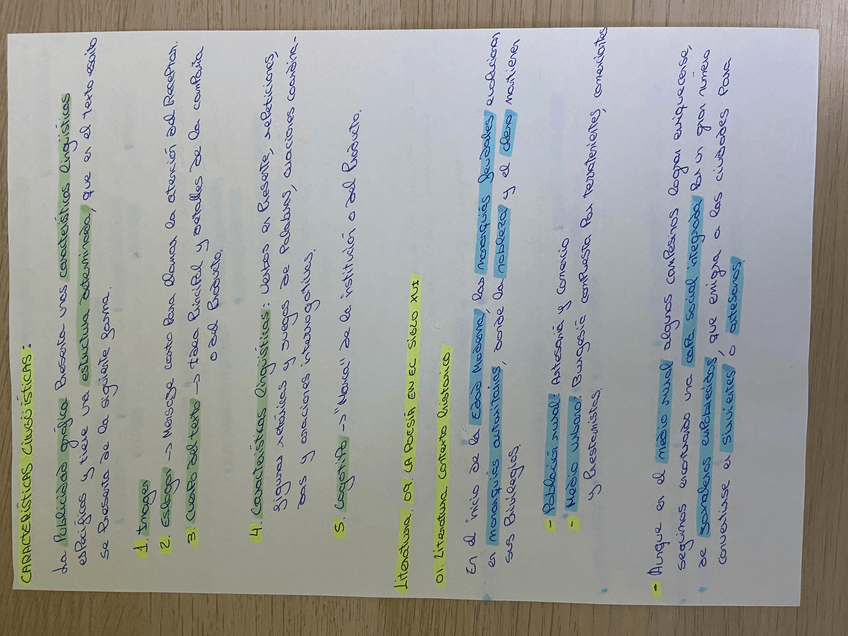 CARACTERÍSTICAS LINGÜÍSTICAS:
La Publicidad gráfica Presenta unas características lingüísticas
específicas y tiene una estructura determinada, que en el texto escrito
se Presenta de la siguiente forma.
1. Imagen
2. Eslogan -> Mensaje corto Para llamar la atención del Receptor.
3. Cuerpo del texto -> Idea Principal y detalles de la campaña
o del Producto.
4. Características lingüísticas: Verbos en Presente, repeticiones,
figuras retóricas y juegos de Palabras, oraciones coordina-
das y oraciones interrogativas.
5. Logotipo -> "Marca" de la institución o del Producto.
Literatura. 09. LA POESÍA EN EL SIGLO XVI
01. Literatura. Contexto histórico
En el inicio de la Edad Moderna, las monarquías feudales evolucionan
en monarquías autoritarias, donde la nobleza y el clero mantienen
sus Privilegios.
- Población rural: Artesanía y Comercio
- Medio urbano: Burguesía compuesta Por terratenientes, comerciantes
y Prestamistas.
- Aunque en el medio rural algunos campesinos logran enriquecerse,
seguimos encontrando una capa social integrada Por un gran número
de jornaleros empobrecidos, que emigra a las ciudades Para
convertirse en sirvientes o artesanos.